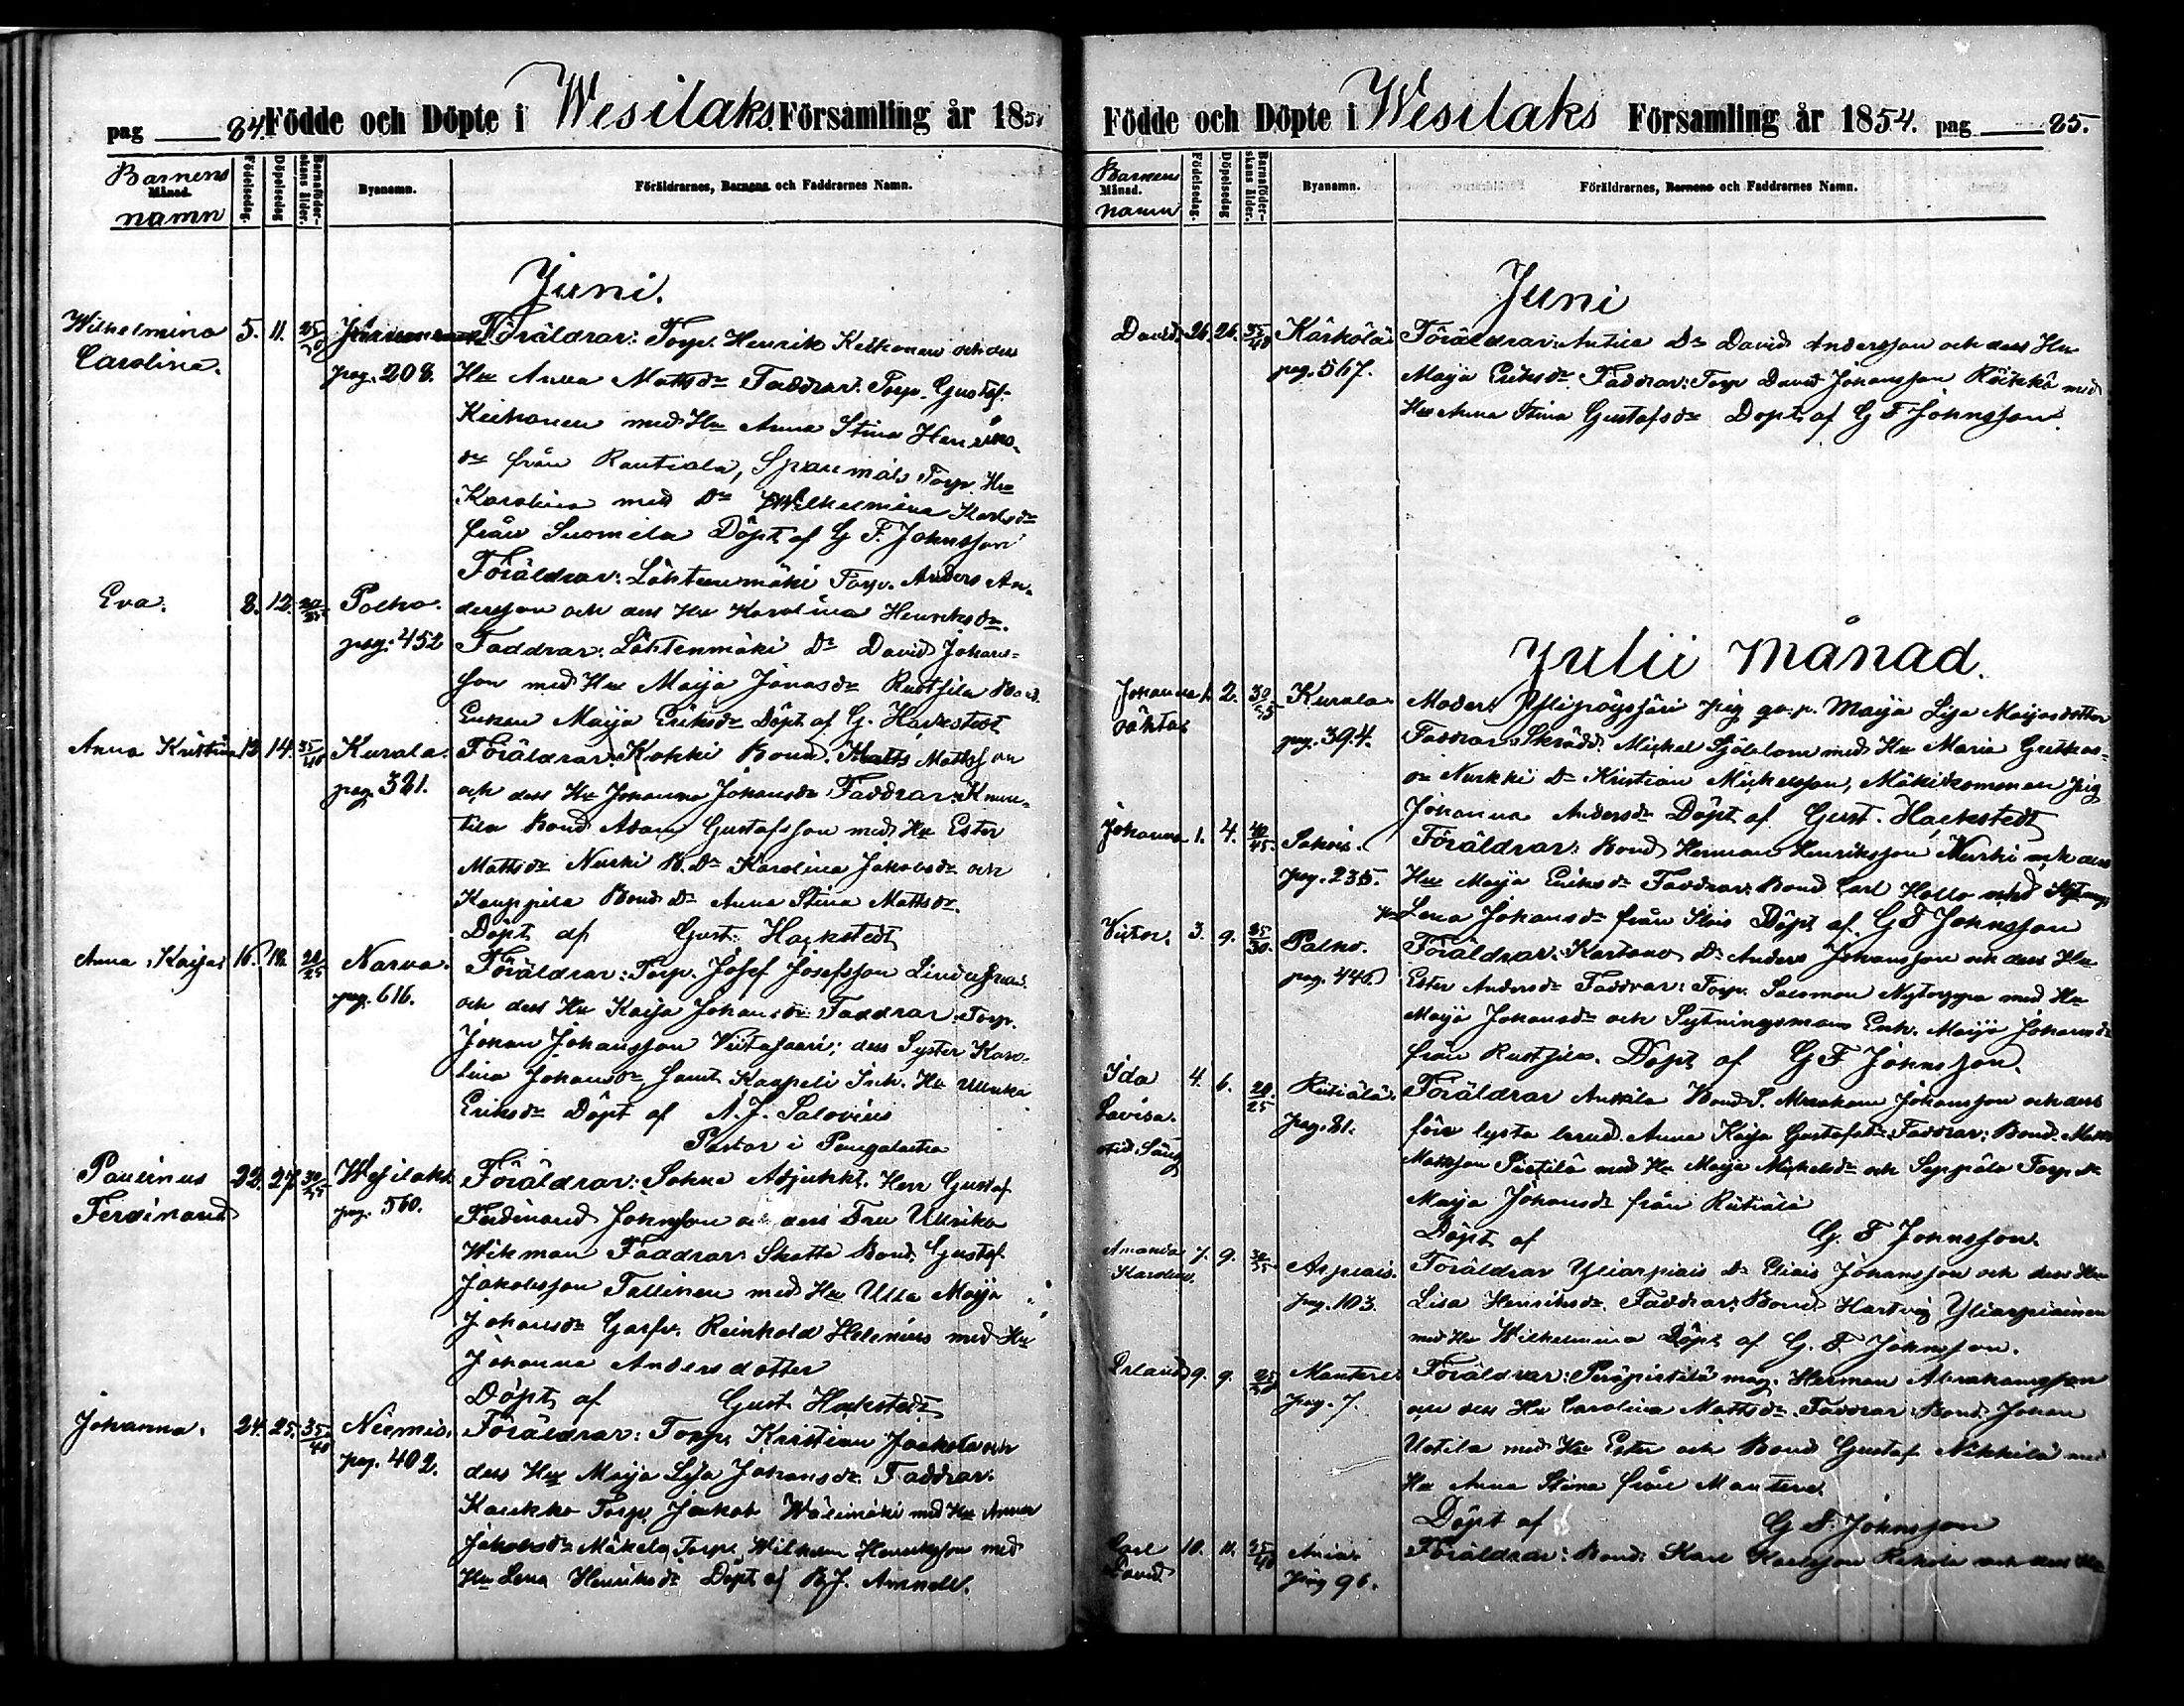 pag 84. Födde och Döpte i Wesilaks Församling år 185
Barnens
Månad.
namn
Födelsedag.
Döpelsedag
Barnaföder-
skans ålder.
Byanamn.
Föräldrarnes, Barnens och Faddrarnes Namn.
Juni.
Wilhelmina 5. 11. 25/30 Föräldrar: Torp. Henrik Keihonen och dess
Carolina. pag. 208. Hu Anna Mattsdr Faddrar: Torp. Gustaf
Keihonen med Hu Anna Stina Henriks
dr från Rautiala, Torp. Hu
Karolina med Dr Wilhelmina Karlsdr
från Suomela Döpt af G F. Johnsson
Föräldrar: Lähteenmäki Torp. Anders An-
Eva. 8. 12. Polho. dersson och dess Hu Karolina Henriksdr.
pag. 452 Faddrar: Lähtenmäki Dr David Johans-
son med Hu Maija Jonasdr Rustfila
Enkan Maija Eriksdr Döpt af G. Hackstedt
Anna Kristina 13. 14. 35/40 Kurala. Föräldrar: Kokki Bond. Matts Mattsson
pag 321. och dess Hu Johanna Johansdr Faddrar: Knuu-
tila Bond Adam Gustafsson med Hu Ester
Mattsdr Nurki B. Dr Karolina Jakobsdr och
Kauppila Bond Dr Anna Stina Mattsdr.
Döpt af Gust. Hackstedt
Anna Kaija 16. 18. 20/25 Narva. Föräldrar: Torp. Josef Josefsson
pag. 616. och dess Hu Kaija Johansdr Faddrar: Torp.
Johan Johansson Viitasaari; dess Syster Karo-
lina Johansdr samt Kaapeli Inh. Hu Ulrika
Eriksdr Döpt af A. J. Salovius
Pastor i Pungalaitio
Paulinus 22. 27. 30/35 Wesilaks Föräldrar: Sokne Adjunkt. Herr Gustaf
Ferdinand pag. 560. Ferdinand Johnsson och dess Fru Ulrika
Wikman Faddrar: Skatta Bond. Gustaf
Jakobsson Tallinen med Hu Ulla Maija
Johansdr Garfv. Reinhold Helenius med Hu
Johanna Andersdotter
Döpt af Gust Hackstedt
Johanna. 24. 25. 35/40 Niemis. Föräldrar: Torp. Kristian Jaakola och
pag. 402. dess Hu Maija Lisa Johansdr Faddrar.
Kaukko Torp. Jaakob Wälimäki med Hu Anna
Jakobsdr Mäkelä Torp. Wilhelm Henriksson med
Hu Lena Henriksdr Döpt af B J. Amnell.
Födde och Döpte i Wesilaks Församling år 1854. pag 85.
Barnens
Månad.
namn
Födelsedag.
Döpelsedag
Barnaföder-
skans ålder.
Byanamn.
Föräldrarnes, Barnens och Faddrarnes Namn.
Juni
David 26. 26. 35/40 Kärkölä Föräldrar: Antila Dr David Andersson och dess Hu
pag. 567. Maija Eriksdr Faddrar: Torp David Johansson Röikkä med
Hu Anna Stina Gustafsdr Döpt af G F Johnsson.
Julii månad.
Johanna 1. 2. 30/35 Kurala Moder: pig Maija Lisa Maijasdotter
oäkta pag. 394. Faddrar: Skrädd. Mickel Sjöblom med Hu Maria
dr Nurkki Dr Kristian Mickelsson, pig
Johanna Andersdr Döpt af Gust. Hackstedt
Johanna 1. 4. 40/45. Sakois. Föräldrar: Bond Herman Henriksson Nurki och dess
pag. 235. Hu Maija Eriksdr Faddrar: Bond Carl Hollo med
Hu Lena Johansdr från Döpt af G F Johnsson
Victor. 3. 9. 25/30. Palho. Föräldrar: Kartano Dr Anders Johansson och dess Hu
pag. 446 Ester Andersdr Faddrar: Torp. Salomon Nytorppa med Hu
Maija Johansdr och Sytningsmans Enk. Maija Johansdr
från Rustfila. Döpt af G F Johnsson.
Ida 4. 6. 20/25 Riitiälä. Föräldrar Anttila Bond S. Abraham Johansson och dess
Lovisa. pag. 81. före lysta brud. Anna Kaija Gustafsdr Faddrar: Bond. Matts
Mattsson Pietilä med Hu Maija Mickelsdr och Seppälä Torp. Dr
Maija Johansdr från Riitiälä
Döpt af G. F Johnsson.
Amanda 7. 9. Arpiais. Föräldrar Yliarpiais Dr Elias Johansson och dess Hu
Karolina. pag. 103. Lisa Henriksdr Faddrar: Bond. Hartvig Yliarpiainen
med Hu Wilhelmina Döpt af G. F Johnsson.
Erland 9. 9. Mantere Föräldrar: mag. Herman Abrahamsson
pag. 7. och dess Hu Carolina Mattsdr. Faddrar: Bond Johan
Uotila med Hu Ester och Bond Gustaf Nikkilä med
Hu Anna Stina från Mantere
Döpt af G F. Johnsson
Carl 10. 11. 35/40 Ania. Föräldrar: Bond: Karl Karlsson Rekola och dess Hu
David pag 96.